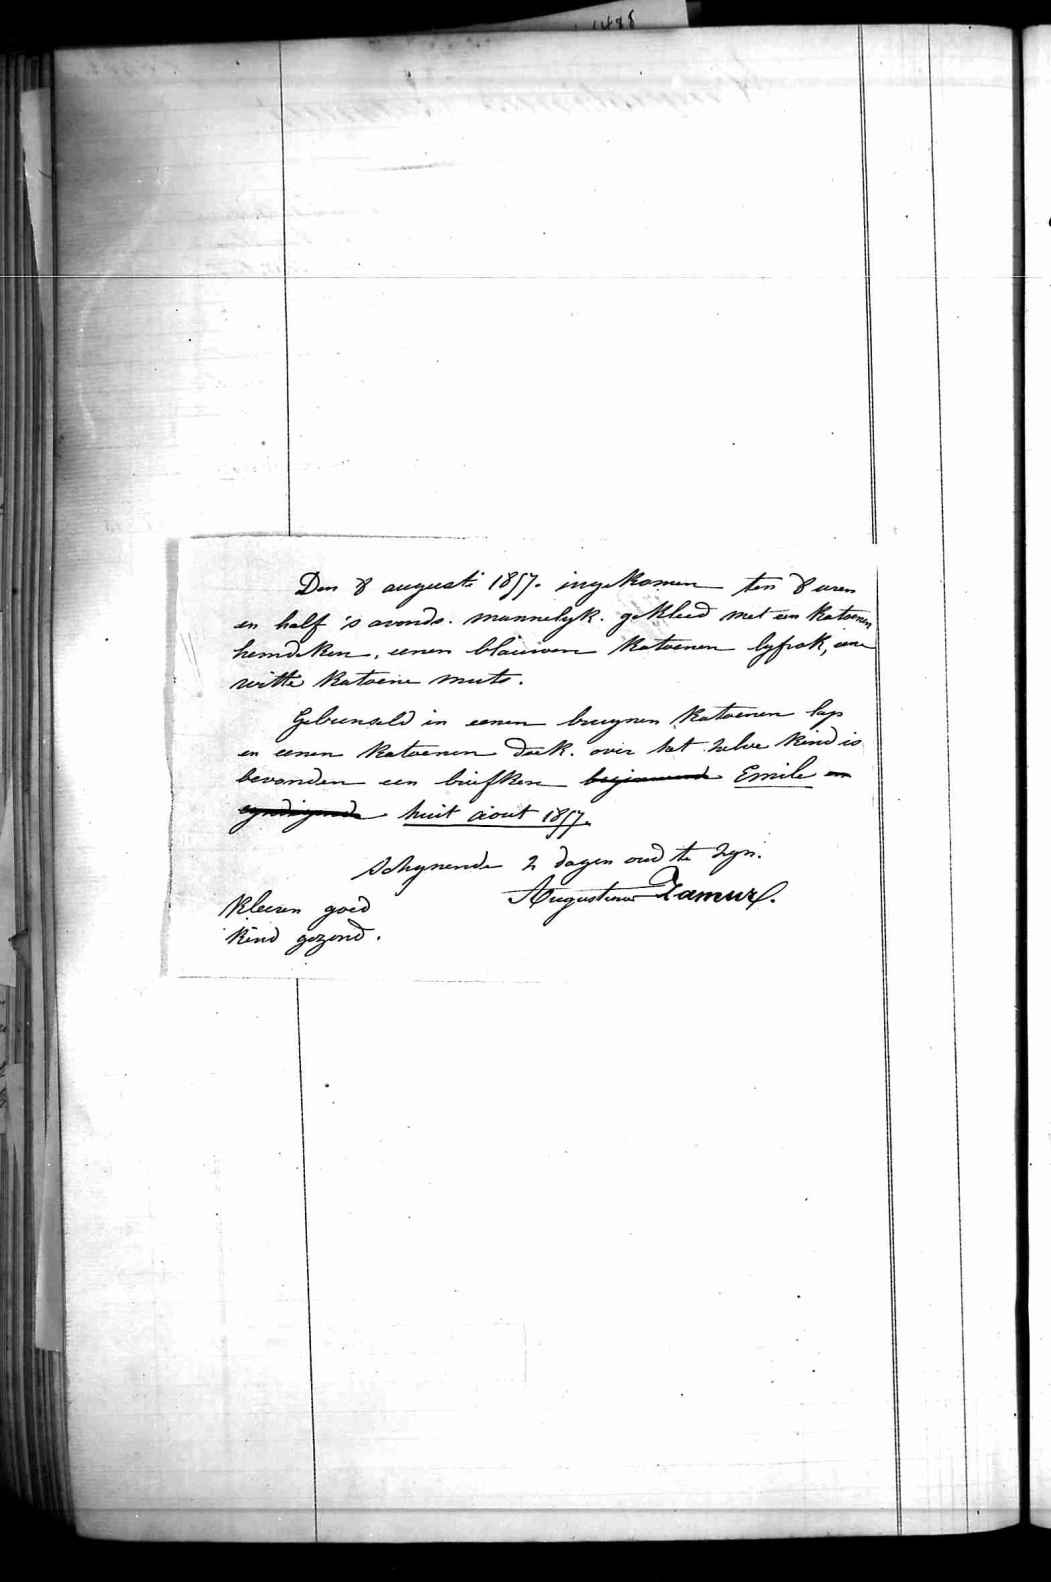 1488
Den 8 augusti 1857. ingekomen ten 8 uren
en half 's avonds. mannelyk. gekleed met een katoenen
hemdeken, eenen blauwen katoenen lyfrok, eene
witte katoene muts.
Gebunseld in eenen bruynen katoenen lap
en eenen katoenen doek. over het zelve kind is
bevonden een briefken beginnende Emile en
eyndigende huit aout 1857.
Schynende 2 dagen oud te zyn.
Augustinus Zamur.
Kleeren goed
Kind gezond.